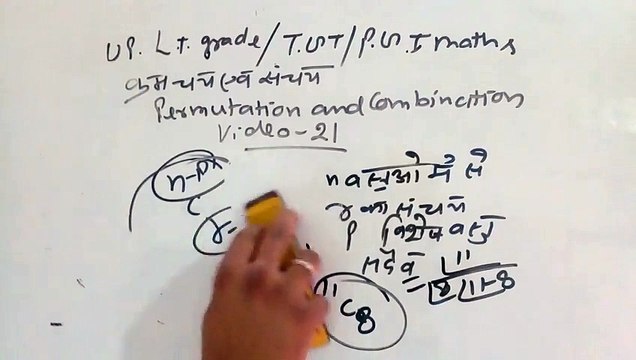 UP. LT. grade/T.GT/P.G.T maths
क्रमचय एवं संचय
Permutation and Combination
Video-21
n वस्तुओ में से
n-p
r का संचय
C
r-
p विशेष वस्तु
सदैव
11
8 11-8
11
C8